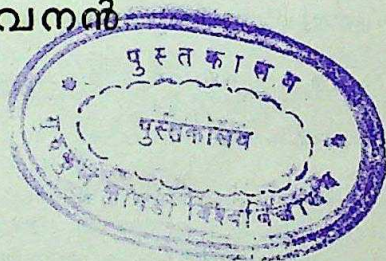 വനൻ
पुस्तकालय
पुस्तकालय
गुरुकुल कांगड़ी विश्वविद्यालय